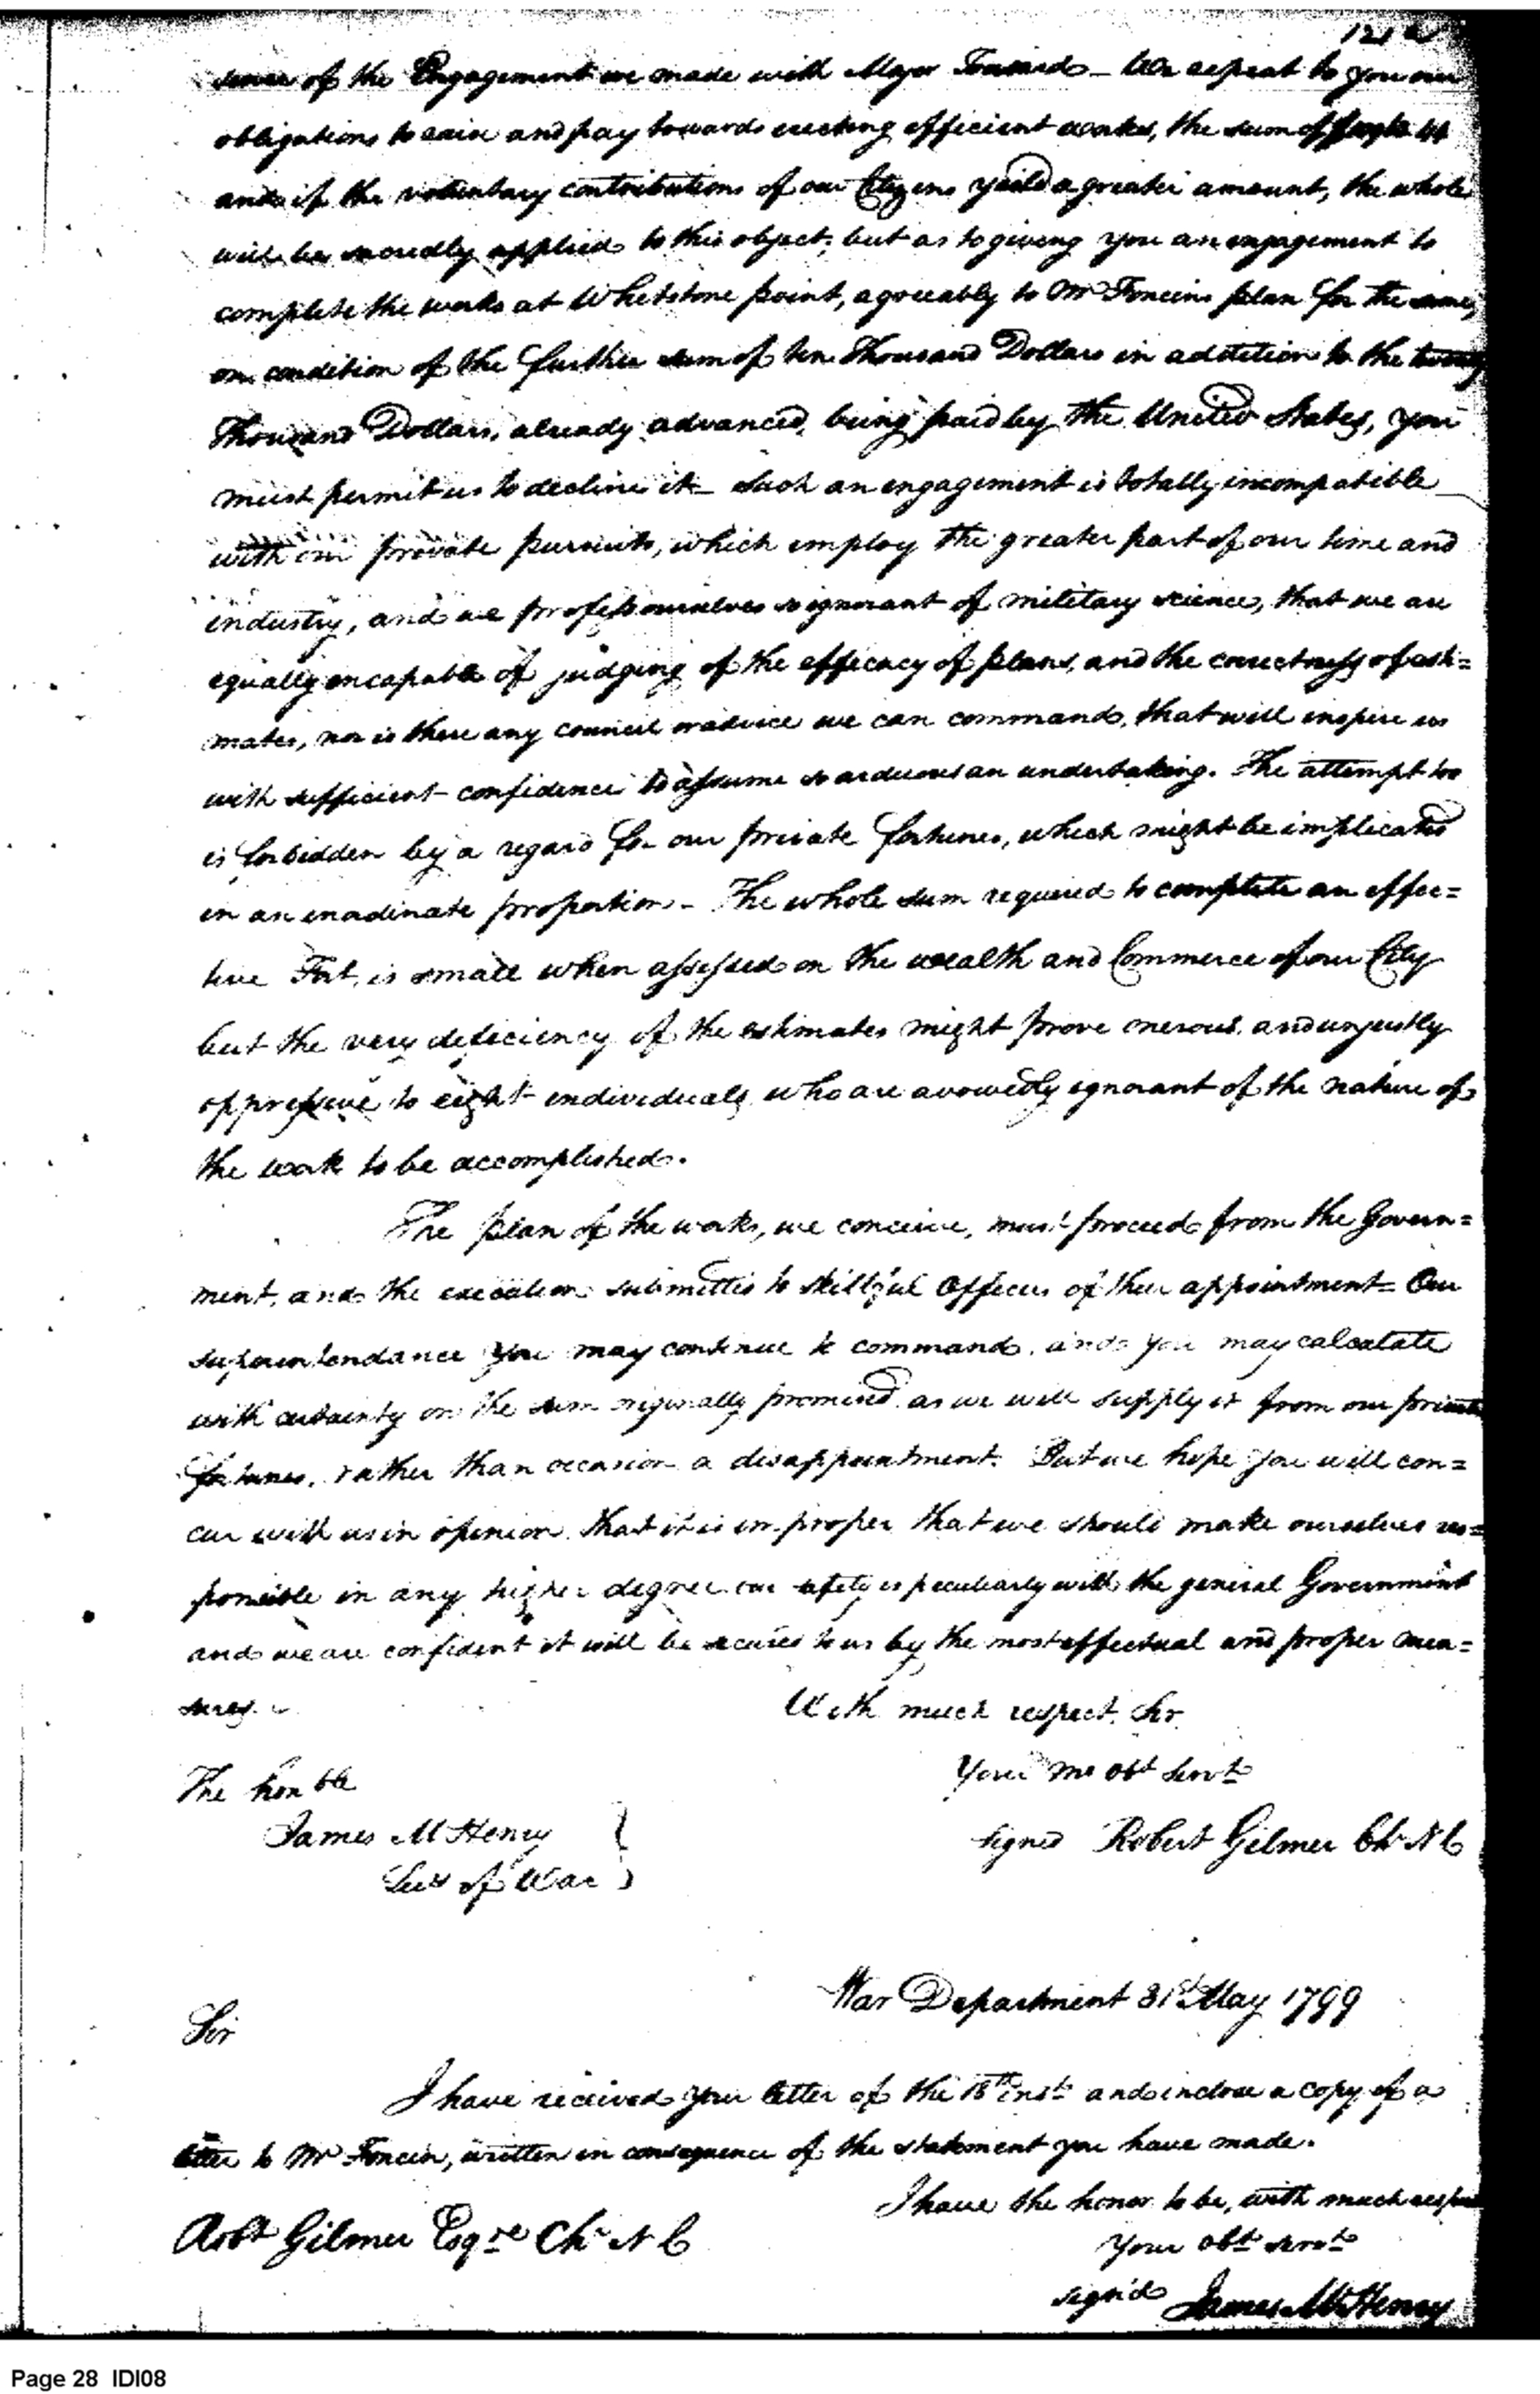 of the Engagement we made with Major Tousard – We repeat to you our
obligations to raise and pay towards erecting efficient works, the sum of
and if the voluntary contributions of our Citizens yeild a greater amount, the whole
will be sacredly applied to this object, but as to giving you an engagement to
complete the works at Whetstone point, agreeably to Mr Foncins plan for the same,
on condition of the further sum of ten Thousand Dollars in addition to the twenty
Thousand Dollars, already advanced, being paid by the United States, you
must permit us to decline it – Such an engagement is totally incompatible
with our private pursuits, which employ the greater part of our time and
industry, and we profess ourselves so ignorant of military science, that we are
equally incapable of judging of the efficacy of plans, and the correctness of esti=
mates, nor is there any council or advice we can command, that will inspire us
with sufficient confidence to assume so arduous an undertaking. The attempt too
is forbidden by a regard for our private fortunes, which might be implicated
in an inadinate proportion – The whole sum required to complete an effec=
tive Fort, is small when assessed on the wealth and Commerce of our City
but the very deficiency of the estimates might prove onerous, and unjustly
oppressive to eight individuals who are avowedly ignorant of the nature of
the work to be accomplished.
The plan of the works, we conceive, must proceed from the Govern=
ment, and the execution submitted to skillful Officers of their appointment = Our
superintendance you may continue to command, and you may calculate
with certainty on the sum originally promised, as we will supply it from our private
fortunes, rather than occasion a disappointment. But we hope you will con=
cur with us in opinion that it is improper that we should make ourselves res=
ponsible in any higher degree our safety is peculiarly with the general Government
and we are confident it will be secured to us by the most effectual and proper mea=
sures.
With much respect, Sir
Your mo obt servt
The honble
James McHenry
Secy of War
signed Robert Gilmer Chr N C
War Department 31st May 1799
Sir
I have received your letter of the 18th inst and inclose a copy of a
letter to Mr Foncin, written in consequence of the statement you have made.
I have the honor to be, with much respect
Your obt servt
Robt Gilmer Esqre Chr N C
sign'd James McHenry
Page 28 IDI08